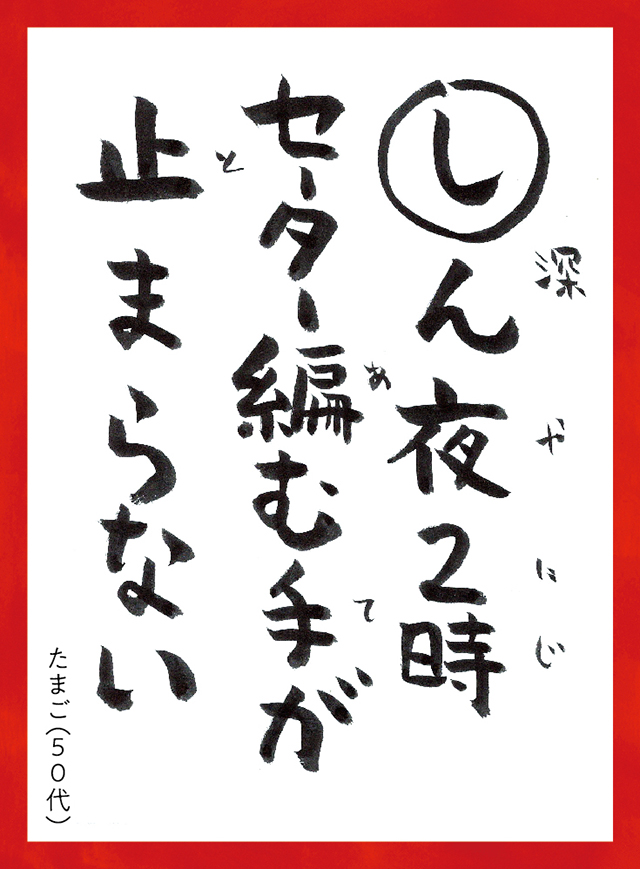 しん夜2時
深 や にじ
セーター編む手が
あ て
止まらない
と
たまご(50代)